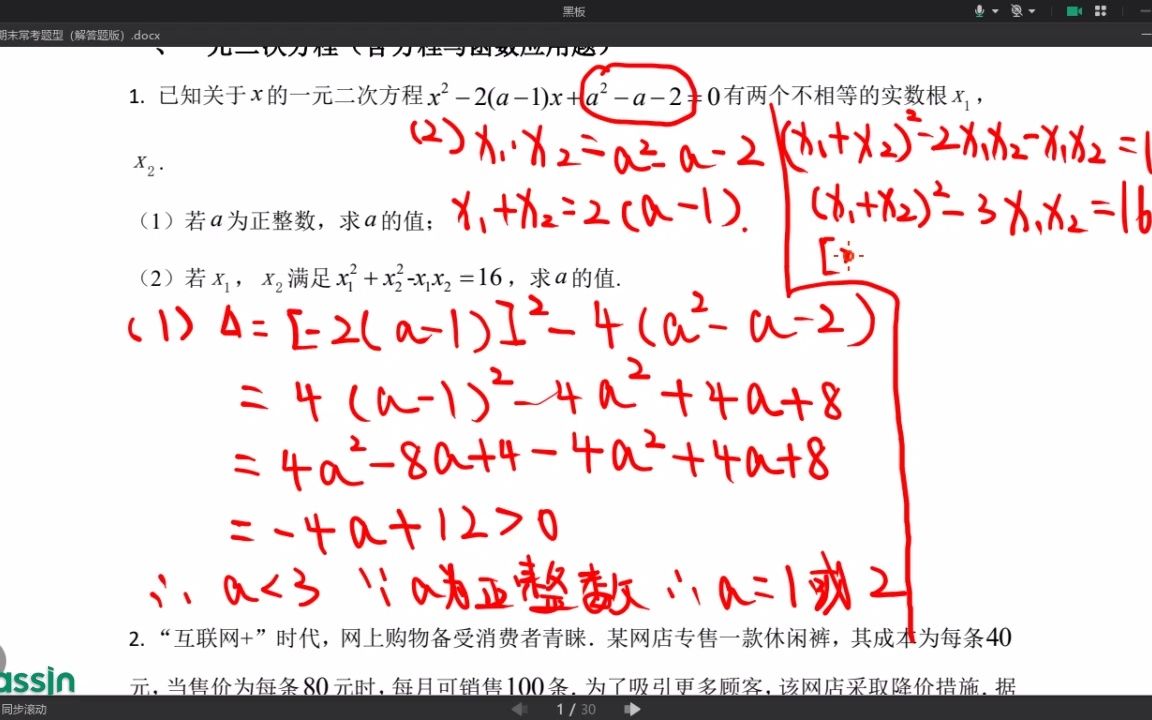 黑板
期末常考题型（解答题版）.docx
、一元二次方程（含方程与函数应用题）
1. 已知关于 x 的一元二次方程 x² − 2(a − 1)x + a² − a − 2 = 0 有两个不相等的实数根 x₁，
(2) x₁·x₂ = a² - a - 2
(x₁+x₂)² - 2x₁x₂ - x₁x₂ = 1
x₂.
x₁+x₂ = 2(a-1).
(x₁+x₂)² - 3x₁x₂ = 16
[
（1）若 a 为正整数，求 a 的值；
（2）若 x₁，x₂ 满足 x₁² + x₂² - x₁x₂ = 16，求 a 的值.
(1) Δ = [-2(a-1)]² - 4(a² - a - 2)
= 4(a-1)² - 4a² + 4a + 8
= 4a² - 8a + 4 - 4a² + 4a + 8
= -4a + 12 > 0
∴ a < 3 ∵ a为正整数 ∴ a = 1 或 2
2. “互联网+”时代，网上购物备受消费者青睐．某网店专售一款休闲裤，其成本为每条40
元，当售价为每条80元时，每月可销售100条．为了吸引更多顾客，该网店采取降价措施．据
assin
同步滚动
1 / 30